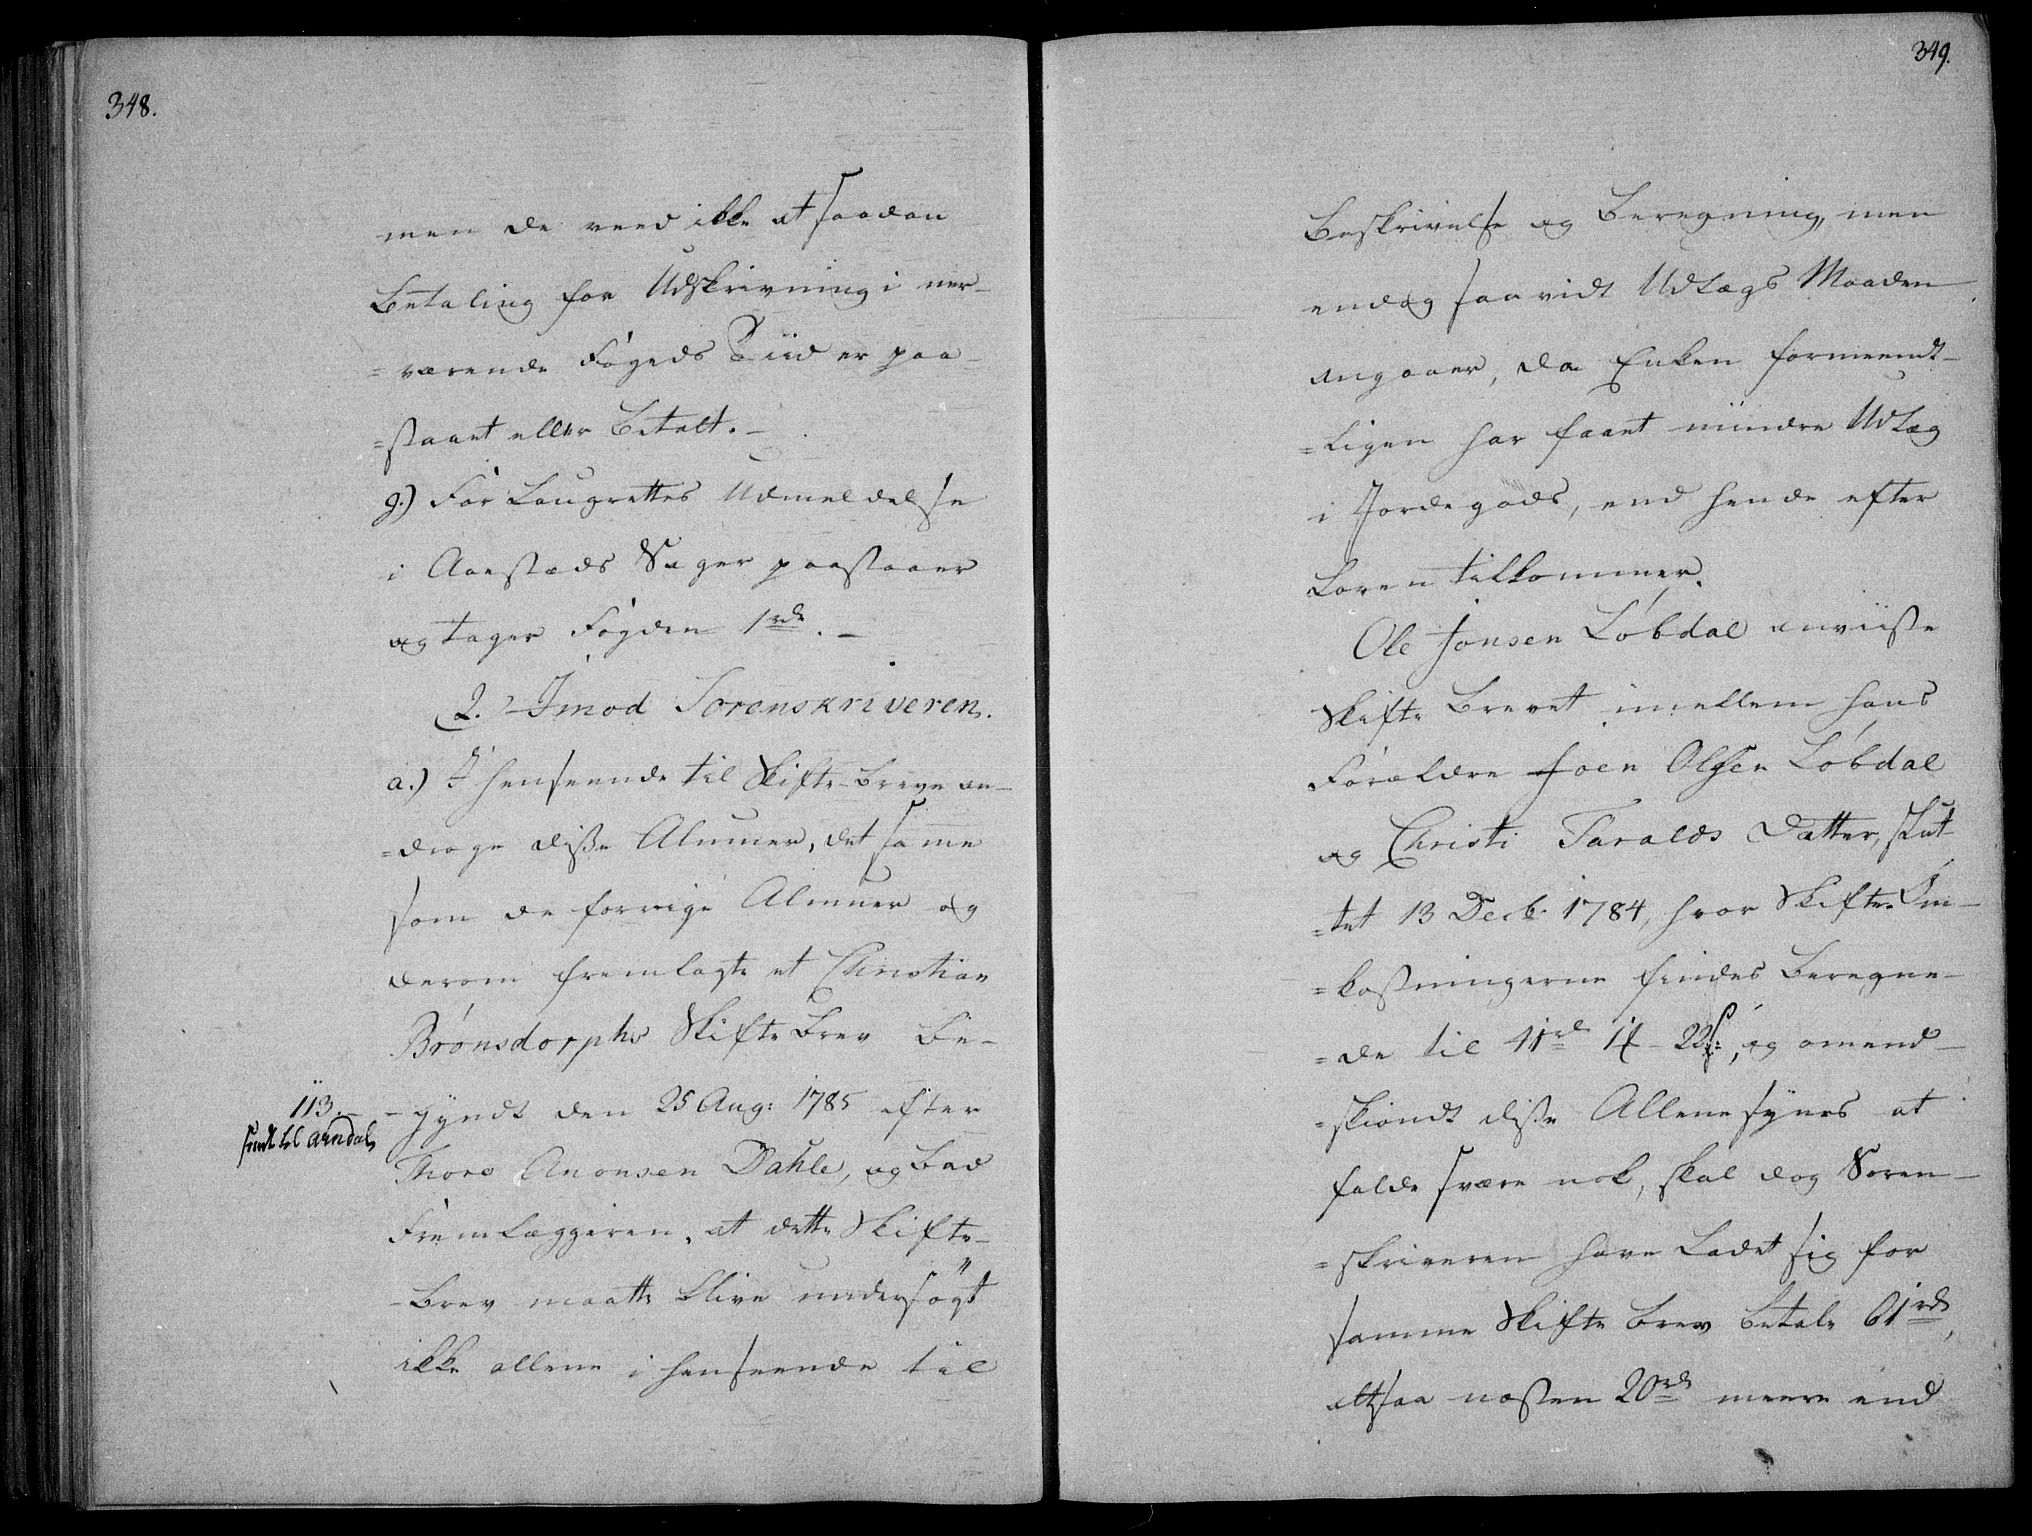 348.
men de veed ikke at saadan
Betaling for Udskrivning i nær-
=værende Fogeds Tiid er paa-
=staaet eller Betalt. -
g.) For Laugrettes Udmeldelse
i Aaesteds Sager paastaaer
og tager Fogden 1 rd. -
2. Imod Sorenskriveren.
a.) I henseende til Skifte-Breve an-
=droge disse Almuer, det samme
som de forrige Almuer og
derom fremlagte et Christian
Brønsdorphs Skifte Brev be-
-gyndt den 25 Aug: 1785 efter
113.
sendt til Arndal
Thore Anonsen Dahle, og bad
Fremlæggeren, at dette Skifte-
-Brev maatte blive undersøgt
ikke allene i henseende til
349.
Beskrivelse og Beregning, men
endog saavidt Udlægs Maaden
angaaer, da Enken formeendt-
=ligen har faaet mindre Udlæg
i Jordegods, end hende efter
Loven tilkommer.
Ole Jonsen Løbdal anviiste
Skifte Brevet imellem hans
Forældre Joen Olsen Løbdal
og Christi Taralds Datter, slut-
=tet 13 Decb. 1784, hvor Skifte Om-
=kostningerne findes Beregne-
=de til 41 rd 1 ort 22 s:, og omend-
=skiøndt disse Allene synes at
falde svære nok, skal dog Soren-
=skriveren have Ladet sig for
samme Skifte Brev betale 61 rd,
altsaa næsten 20 rd meere end